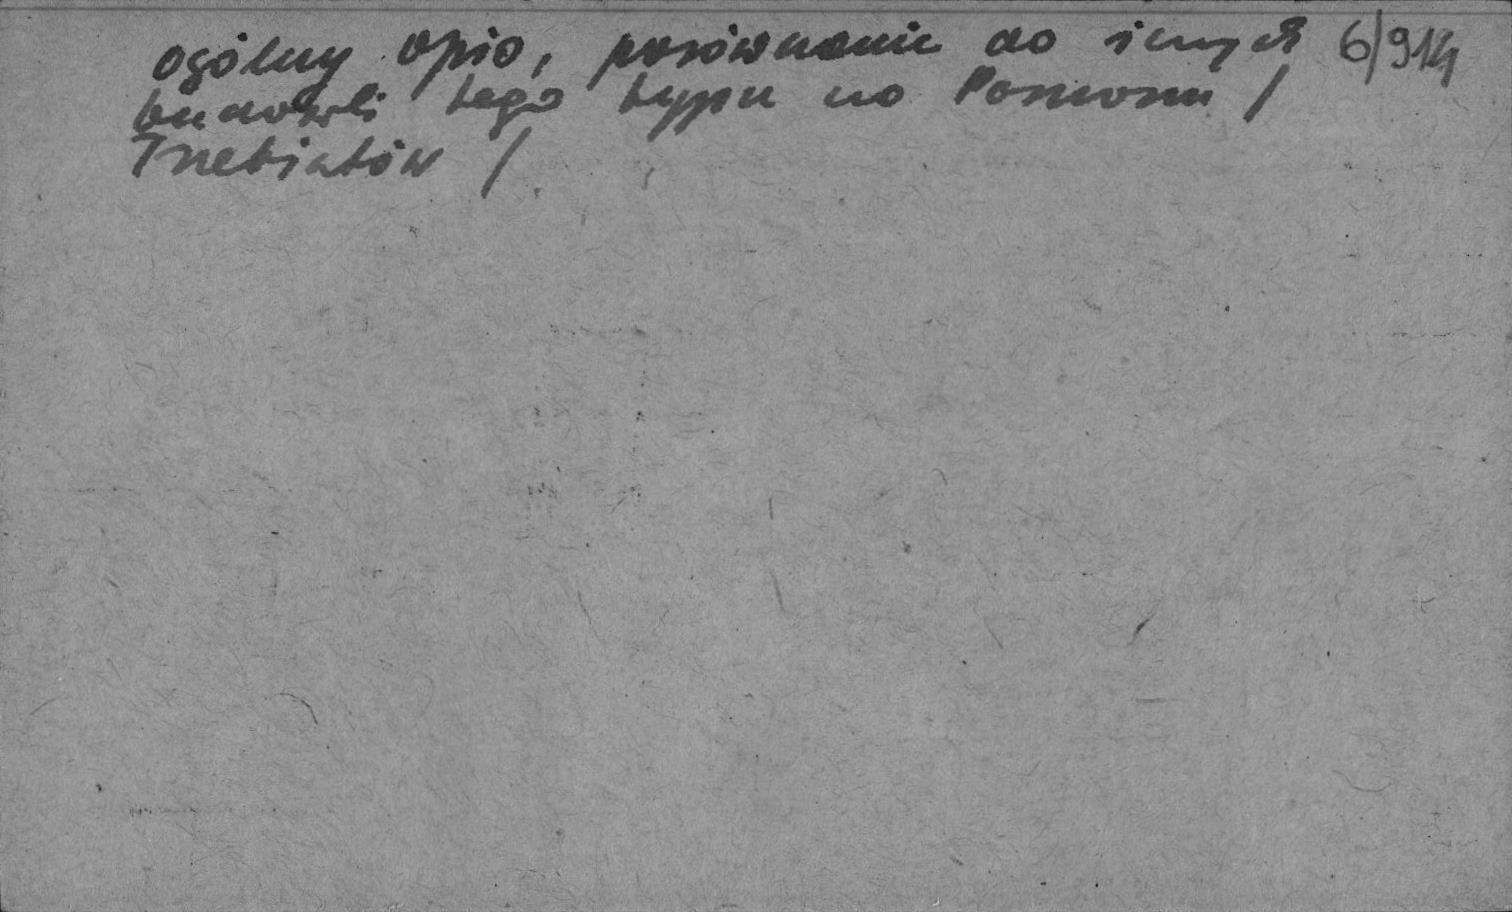 ogólny opis, porównanie do innych 6/914
budowli tego typu na Pomorzu /
Trzebiatów /